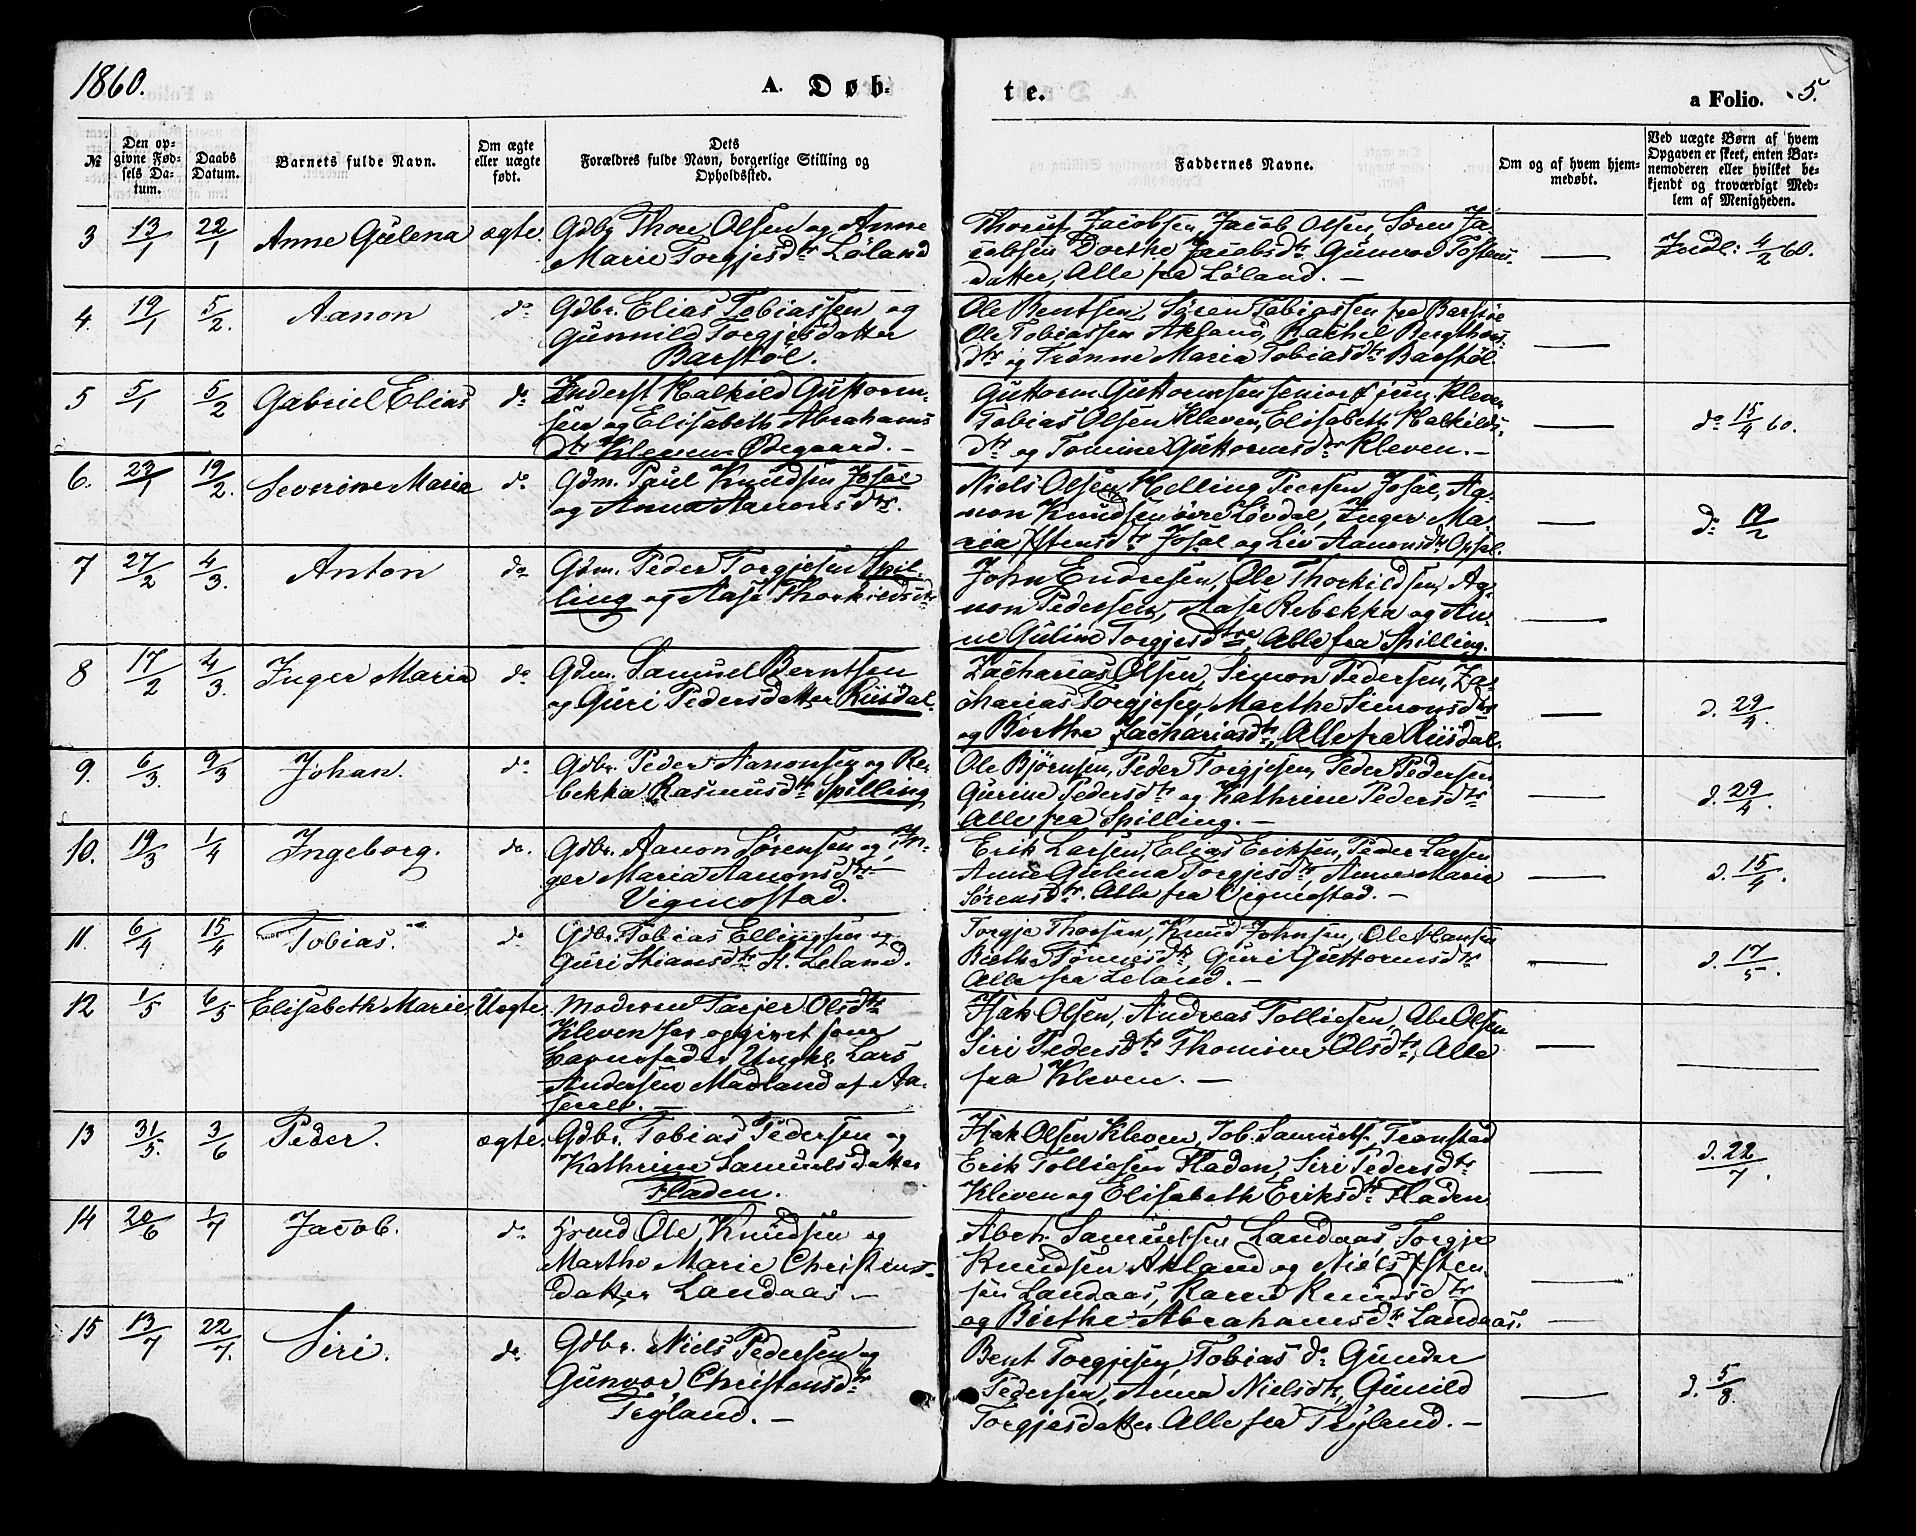 1860.
A. Døb-
te.
a Folio. 5.
№
Den opgivne Fødsels Datum.
Daabs Datum.
Barnets fulde Navn.
Om ægte eller uægte født.
Dets Forældres fulde Navn, borgerlige Stilling og Opholdssted.
Faddernes Navne.
Om og af hvem hjemmedøbt.
Ved uægte Børn af hvem Opgaven er skeet, enten Barnemoderen eller hvilket bekjendt og troværdigt Medlem af Menigheden.
3 13/1 22/1 Anne Gulena ægte.
Gdbr Thore Olsen og Anne
Marie Torgjesdtr Løland
Jacobsen, Jacob Olsen, Søren Ja-
cobsen Dorthe Jacobsdtr Gunvor Tostens-
datter, Alle fra Løland. —
Indl: 4/2 60.
4. 19/1 5/2. Aanon do
Gdbr. Elias Tobiassen og
Gunnild Torgjesdatter
Barstøl.
Ole Bentsen, Søren Tobiassen fra Barstøl
Ole Tobiassen Akland, Rachel Bergthors-
dtr og Trønne Maria Tobiasdtr Barstøl
5 5/1 5/2 Gabriel Elias do
Inderst Halkild Guttorm-
sen og Elisabeth Abrahams
dtr Kleven Ødegaard. —
Guttorm Guttormsen senior & jun. Kleven
Tobias Olsen Kleven, Elisabeth Halkilds-
dtr og Tomine Guttormsdtr Kleven. —
do 15/4 60.
6. 23/1 19/2. Severine Maria do
Gdm. Paul Knudsen Josal
og Anna Aanonsdtr.
Niels Olsen Helling Peersen Josal, Aa-
non Knudsen øvre Løvdal, Inger Ma-
ria Ostensdtr Josal og Liv Aanonsdtr Opsal.
do 19/2
7 27/2 4/3. Anton do
Gdm. Peder Torgjesen Spil-
ling og Aase Thorkildsdtr
John Endresen, Ole Thorkildsen, Aa-
non Pedersen, Aase Rebekka og An-
ne Guline Torgjesdtre Alle fra Spilling.
8 17/2 4/3. Inger Maria do
Gdm. Samuel Berntsen
og Guri Pedersdatter Riisdal.
Zacharias Olsen, Simon Pedersen, Za-
charias Torgjesen, Marthe Simonsdtr
og Birthe Zachariasdtr, Alle fra Riisdal.
d. 29/4.
9. 6/3. 9/3 Johan. do
Gdbr. Peder Aanonsen og Re-
bekka Rasmusdtr Spilling
Ole Bjørnsen, Peder Torgjesen, Peder Pedersen
Gurine Pedersdtr og Kathrine Pedersdtr
Alle fra Spilling. —
d. 29/4.
10. 19/3 1/4 Ingeborg. do.
Gdbr. Aanon Sørensen og In-
ger Maria Aanonsdtr —
Vigmostad.
Erik Larsen, Elias Eriksen, Peder Larsen
Anne Gulena Torgjesdtr, Anne Maria
Sørensdtr. Alle fra Vigmostad. —
d. 15/4.
11. 6/4 15/4 Tobias. do
Gdbr. Tobias Ellingsen og
Guri Stiansdtr St. Leland.
Torgje Thorsen, Knud Johnsen, Ole Hansen
Birthe Tønnesdtr Guri Guttormsdtr
Alle fra Leland. —
d. 17/5.
12 1/5 6/5 Elisabeth Marie. Uægte.
Moderen Tarjer Olsdtr
Kleven har opgivet som
barnefader Ungkl. Lars
Andersen Madland af Aa-
seral. —
Isak Olsen, Andreas Tolliesen, Ole Olsen
Siri Pedersdtr Thomine Olsdtr, Alle
fra Kleven. —
13 31/5. 3/6 Peder. ægte.
Gdbr. Tobias Pedersen og
Kathrine Samuelsdatter
Fladen.
Isak Olsen Kleven, Tob. Samuels. Tronstad
Erik Tolliesen Fladen, Siri Pedersdtr
Kleven og Elisabeth Eriksdtr Fladen.
d. 22/7.
14 20/6 1/7 Jacob. do
Ole Knudsen og
Marthe Marie Christens-
datter Landaas —
Abrh. Samuelsen Landaas, Torgje
Knudsen Akland og Niels Osten-
sen Landaas, Karen Knudsdtr
og Birthe Abrahamsdtr Landaas.
15 13/7 22/7. Siri. do
Gdbr. Niels Pedersen og
Gunvor Christensdtr
Tegland. —
Bent Torgjesen, Tobias do Gunder
Pedersen, Anna Nielsdtr, Gunild
Torgjesdatter Alle fra Tegland. —
d. 5/8.